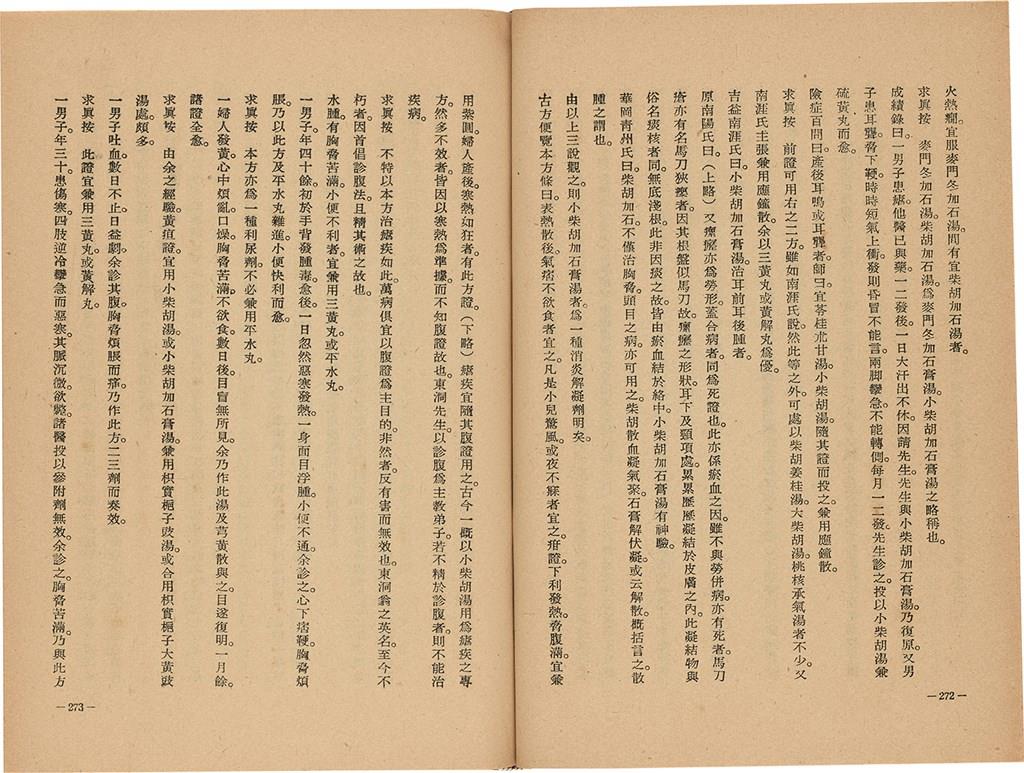 火熱癇。宜服麥門冬加石湯。間有宜柴胡加石湯者。
求眞按　麥門冬加石湯柴胡加石湯爲麥門冬加石膏湯小柴胡加石膏湯之略稱也。
成績錄曰一男子患瘧他醫已與藥一二發後一日大汗出不休。因請先生。先生與小柴胡加石膏湯。乃復原。又男
子患耳聾脅下鞕時時短氣上衝發則昏冒不能言。兩脚攣急不能轉側。每月一二發。先生診之投以小柴胡湯兼
硫黃丸而愈。
險症百問曰產後耳鳴或耳聾者師曰宜苓桂朮甘湯小柴胡湯。隨其證而投之。兼用應鐘散。
求眞按　前證可用右之二方。雖如南涯氏說。然此等之外可處以柴胡姜桂湯大柴胡湯桃核承氣湯者不少。又
南涯氏主張兼用應鐘散。余以三黃丸或黃解丸爲優。
吉益南涯氏曰。小柴胡加石膏湯治耳前耳後腫者。
原南陽氏曰（上略）又瘰癧亦爲勞形。蓋合病者同爲死證也。此亦係瘀血之因。雖不與勞併病。亦有死者。馬刀
瘡亦有名馬刀狹癭者。因其根盤似馬刀故。瘰癧之形狀耳下及頸項處累累歷歷凝結於皮膚之內。此凝結物與
俗名痰核者同。無底淺根。此非因痰之故。皆由瘀血結於絡中。小柴胡加石膏湯有神驗。
華岡靑州氏曰。柴胡加石。不僅治胸脅頭目之病。亦可用之。柴胡散血凝氣聚。石膏解伏凝。或云解散。概括言之。散
腫之謂也。
由以上三說觀之。則小柴胡加石膏湯者。爲一種消炎解凝劑明矣。
古方便覽本方條曰。表熱散後。氣痞不欲食者宜之。凡是小兒驚風或夜不寐者宜之。疳證下利發熱脅腹滿宜兼
用紫圓。婦人產後寒熱如狂者。有此方證。（下略）瘧疾宜隨其腹證用之。古今一概以小柴胡湯用爲瘧疾之專
方。然多不效者。皆因以寒熱爲準據。而不知腹證故也。東洞先生以診腹爲主敎弟子。若不精於診腹者。則不能治
疾病。
求眞按　不特以本方治瘧疾如此。萬病俱宜以腹證爲主目的。非然者。反有害而無效也。東洞翁之英名至今不
朽者。因首倡診腹法。且精其術之故也。
水腫有胸脅苦滿。小便不利者。宜兼用三黃丸或平水丸。
一男子年四十餘。初於手背發腫毒。愈後一日忽然惡寒發熱。一身面目浮腫。小便不通。余診之。心下痞鞕。胸脅煩
脹。乃以此方及平水丸雜進。小便快利而愈。
求眞按　本方亦爲一種利尿劑。不必兼用平水丸。
一婦人發黃。心中煩亂。口燥。胸脅苦滿。不欲食。數日後。目盲無所見。余乃作此湯及芎黃散與之。目遂復明。一月餘。
諸證全愈。
求眞按　由余之經驗。黃疸證。宜用小柴胡湯或小柴胡加石膏湯。兼用枳實梔子豉湯。或合用枳實梔子大黃豉
湯處頗多。
一男子吐血數日不止。日益劇。余診其腹。胸脅煩脹而疼。乃作此方。二三劑而奏效。
求眞按　此證宜兼用三黃丸或黃解丸。
一男子年三十。患傷寒。四肢逆冷攣急而惡寒。其脈沉微欲斃。諸醫投以參附劑無效。余診之。胸脅苦滿。乃與此方
—272—
—273—